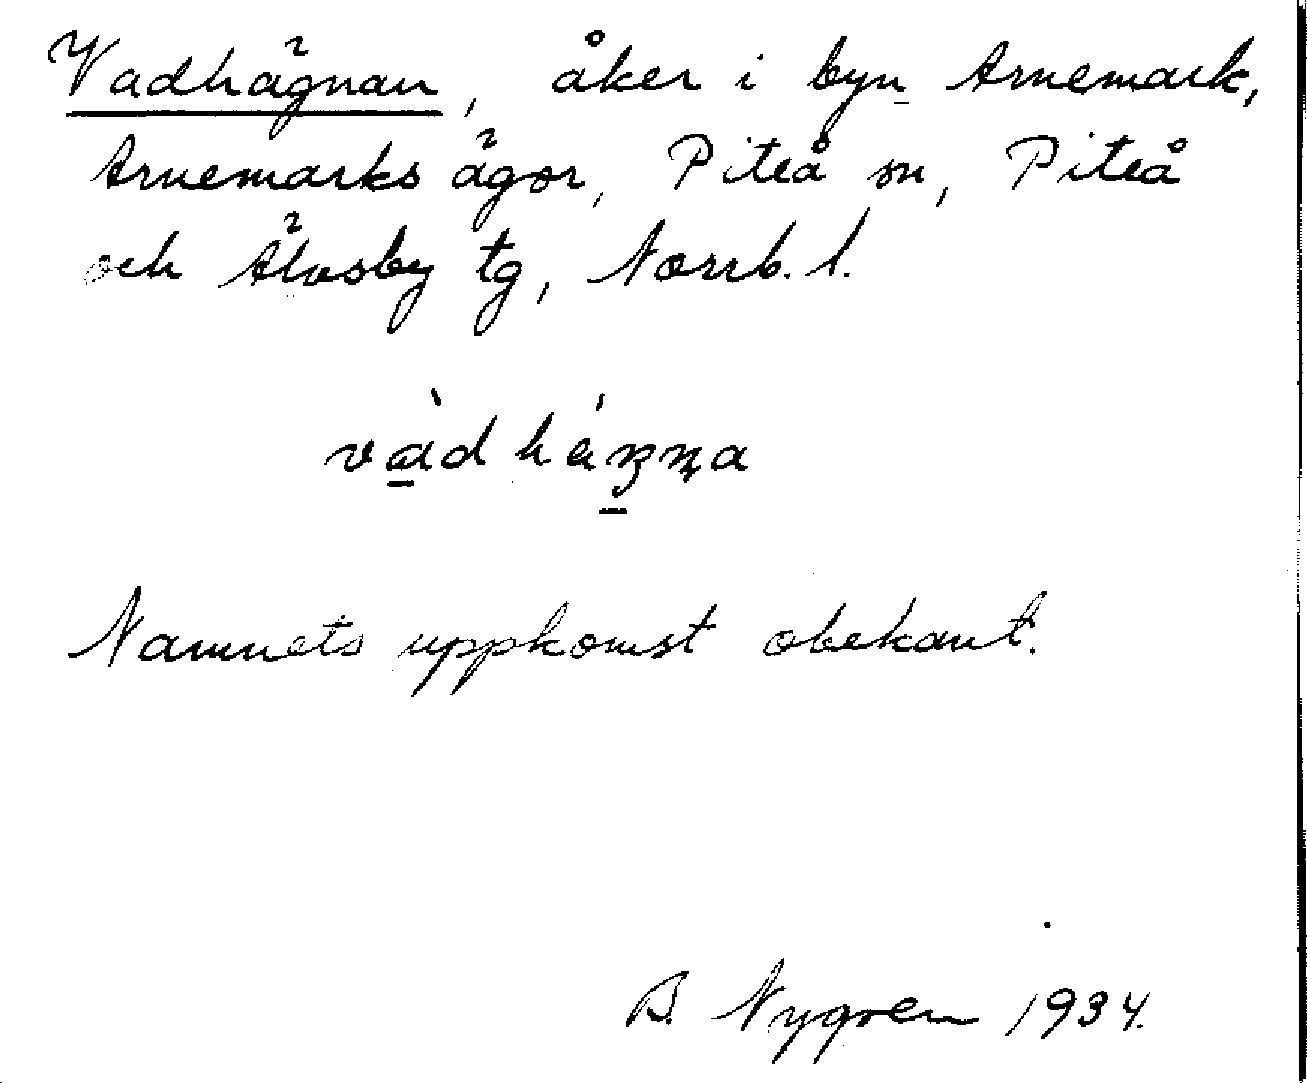 Vadhägnan, åker i byn Arnemark,
Arnemarks ägor, Piteå sn, Piteå
och Älvsby tg, Norrb. l.
Namnets uppkomst obekant.
B. Nygren 1934.